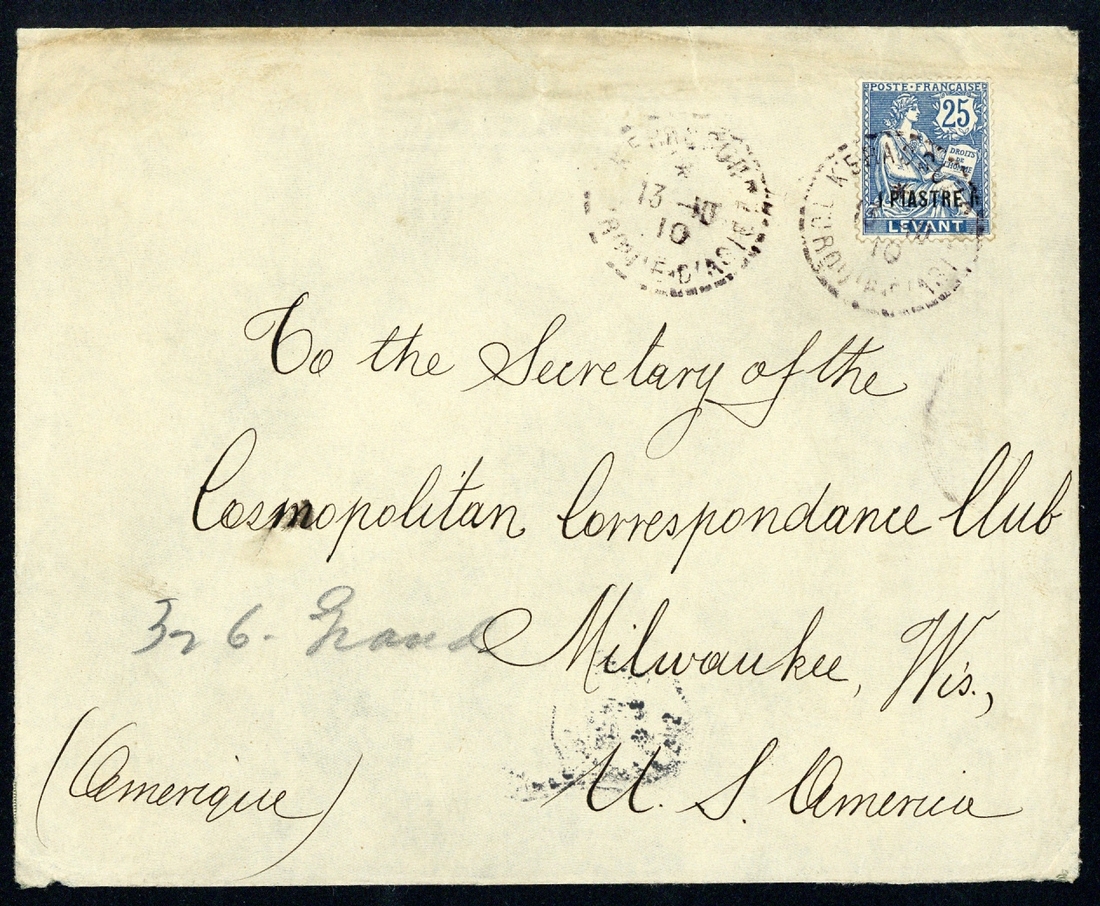 POSTE·FRANÇAISE
25
DROITS
DE
L'HOMME
1 PIASTRE 1
LEVANT
13
10
TURQUIE·D'ASIE
10
To the Secretary of the
Cosmopolitan Correspondance Club
326. Grand
Milwaukee, Wis.,
U. S. America
(Amerique)